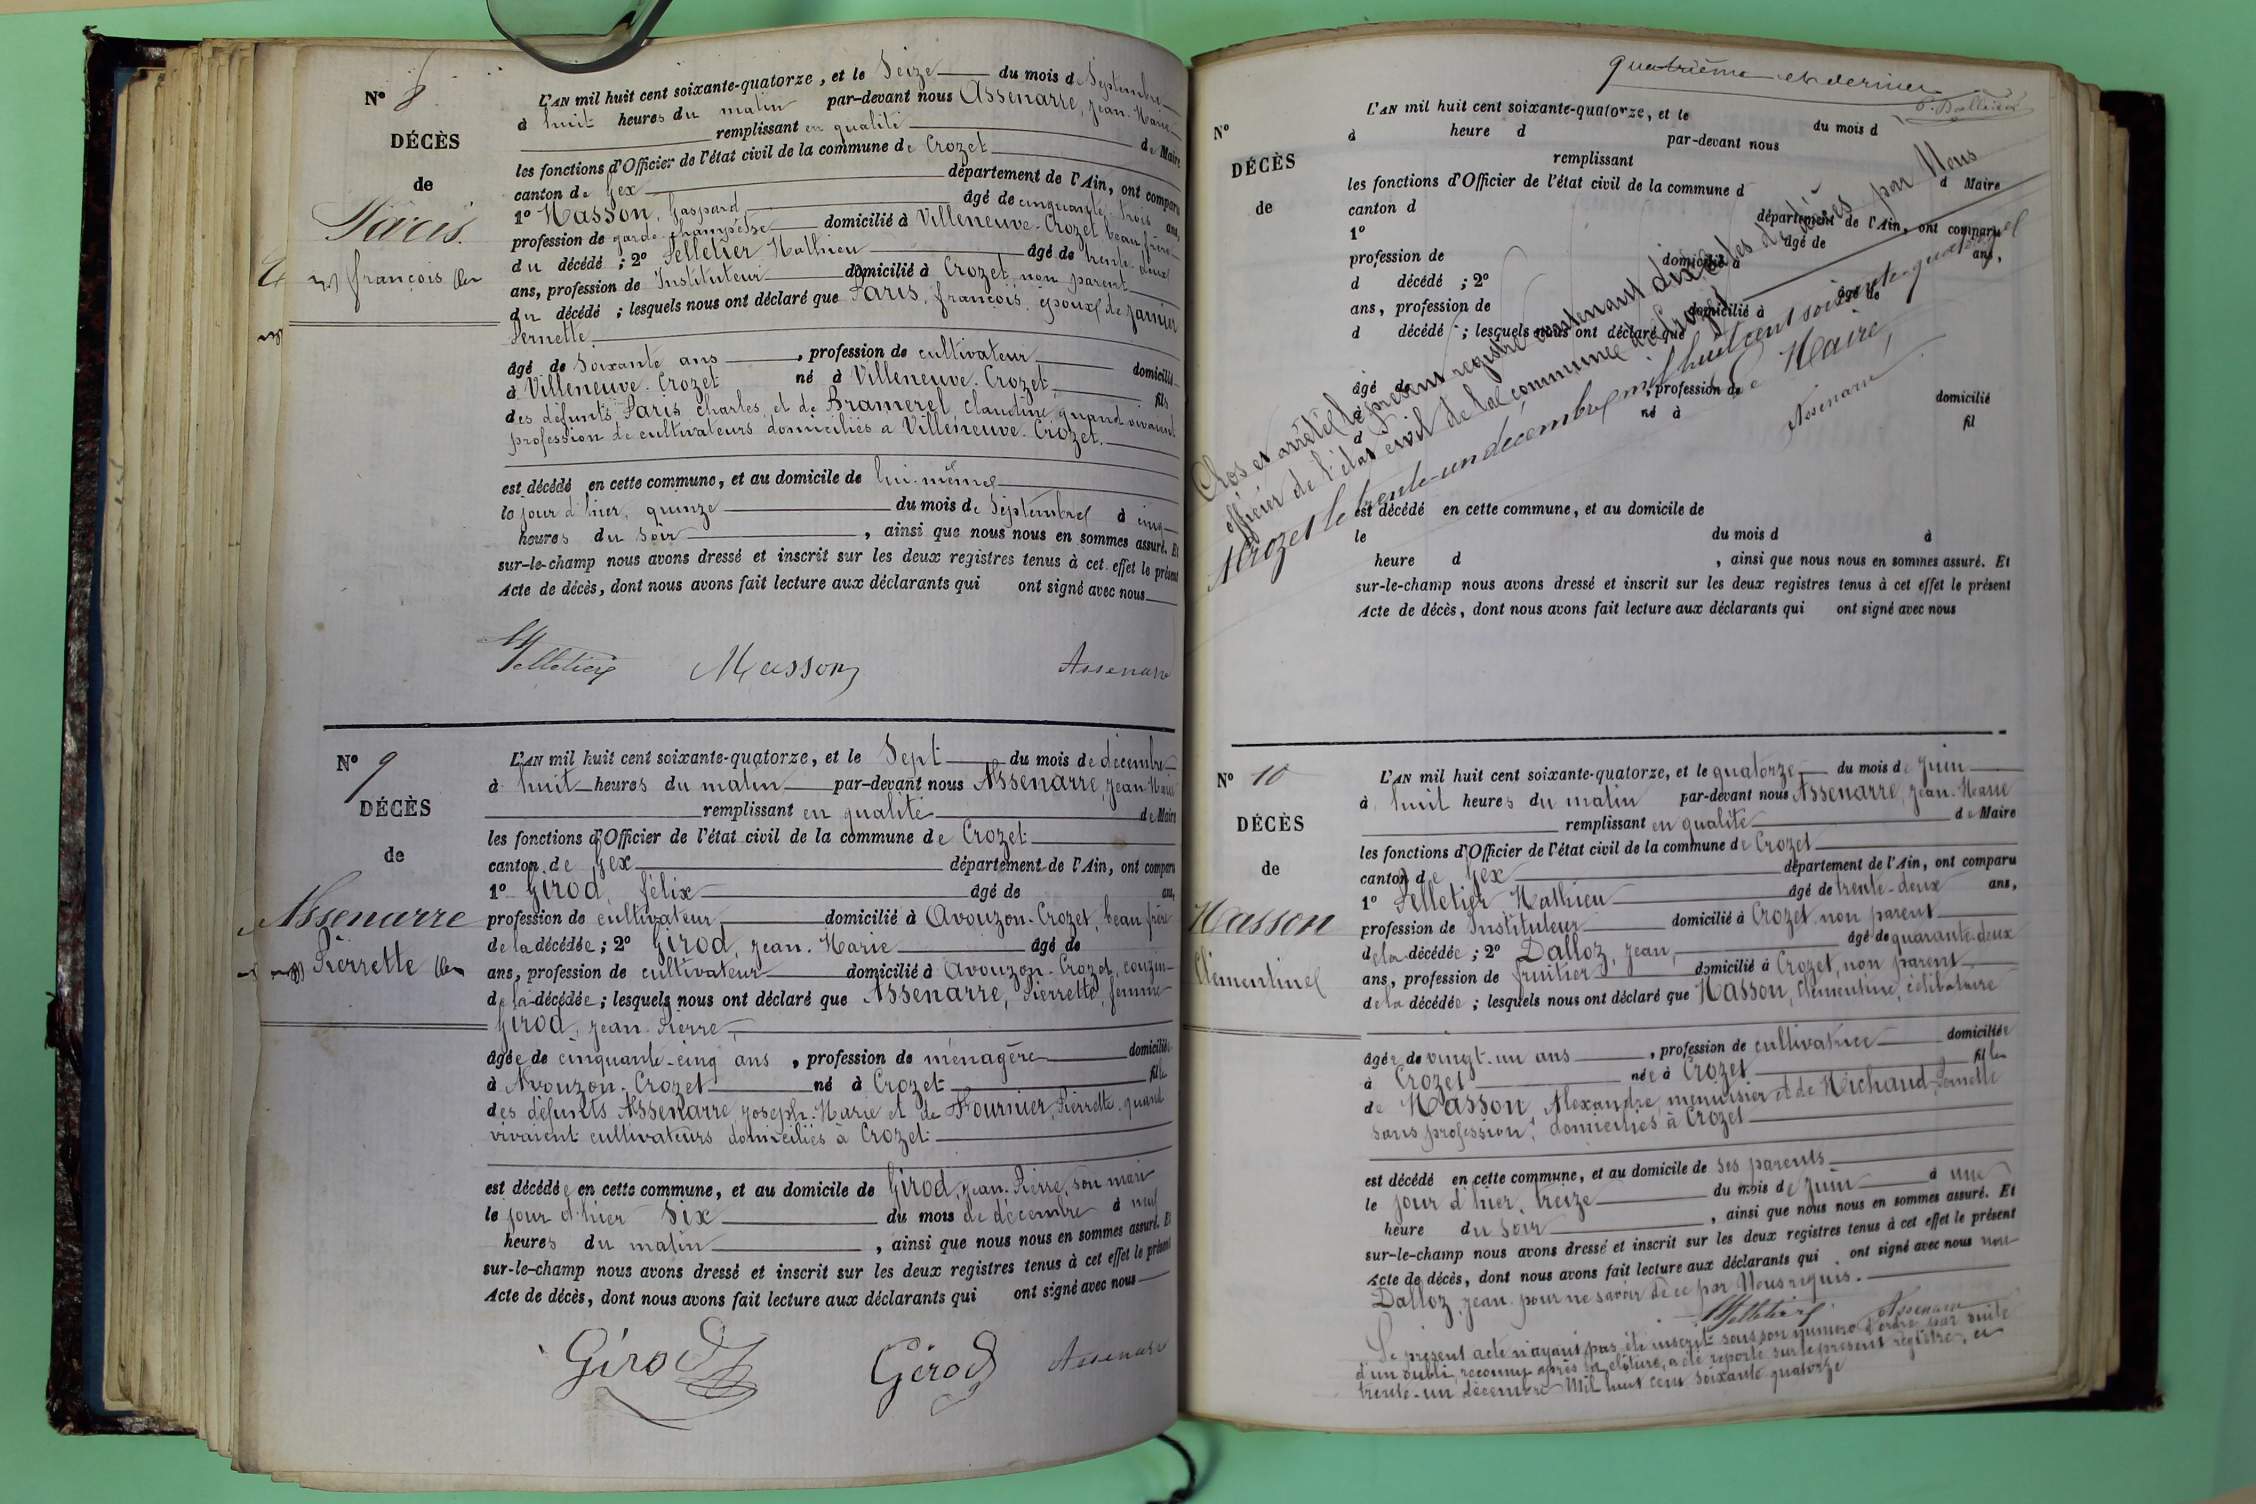 N° 8
DÉCÈS
de
Pâris
françois
L'AN mil huit cent soixante-quatorze, et le Seize du mois de Septembre
à huit heures du matin par-devant nous Assenarre, Jean-Marie
remplissant en qualité de Maire
les fonctions d'Officier de l'état civil de la commune de Crozet
canton de Gex département de l'Ain, ont comparu
1° Masson, Gaspard âgé de cinquante-trois ans,
profession de garde-champêtre domicilié à Villeneuve-Crozet beau frère
du décédé ; 2° Pelletier Mathieu âgé de trente-deux
ans, profession de Instituteur domicilié à Crozet, non parent
du décédé ; lesquels nous ont déclaré que Pâris, françois, époux de
Pernette
âgé de Soixante ans, profession de cultivateur domicilié
à Villeneuve-Crozet né à Villeneuve-Crozet fils
des défunts Pâris Charles, et de Bramerel, Claudine, quand vivaient
profession de cultivateurs domiciliés à Villeneuve-Crozet.
est décédé en cette commune, et au domicile de lui-même
le jour d'hier, quinze du mois de Septembre à cinq
heures du soir, ainsi que nous nous en sommes assuré. Et
sur-le-champ nous avons dressé et inscrit sur les deux registres tenus à cet effet le présent
Acte de décès, dont nous avons fait lecture aux déclarants qui ont signé avec nous
Pelletier Masson Assenarre
N° 9
DÉCÈS
de
Assenarre
Pierrette
L'AN mil huit cent soixante-quatorze, et le Sept du mois de décembre
à huit heures du matin par-devant nous Assenarre, Jean-Marie
remplissant en qualité de Maire
les fonctions d'Officier de l'état civil de la commune de Crozet
canton de Gex département de l'Ain, ont comparu
1° Girod, félix âgé de ans,
profession de cultivateur domicilié à Avouzon-Crozet, beau frère
de la décédée ; 2° Girod, Jean-Marie âgé de
ans, profession de cultivateur domicilié à Avouzon-Crozet, cousin
de la décédée ; lesquels nous ont déclaré que Assenarre, Pierrette, femme
Girod, Jean-Pierre,
âgée de cinquante-cinq ans, profession de ménagère domiciliée
à Avouzon-Crozet né à Crozet fille
des défunts Assenarre Joseph-Marie et de Fournier, Pierrette, quand
vivaient cultivateurs domiciliés à Crozet
est décédée en cette commune, et au domicile de Girod, Jean-Pierre, son mari
le jour d'hier Six du mois de décembre à neuf
heures du matin, ainsi que nous nous en sommes assuré. Et
sur-le-champ nous avons dressé et inscrit sur les deux registres tenus à cet effet le présent
Acte de décès, dont nous avons fait lecture aux déclarants qui ont signé avec nous
Girod Girod Assenarre
quatrième et dernier
N°
DÉCÈS
de
L'AN mil huit cent soixante-quatorze, et le du mois d
à heure d par-devant nous
remplissant d Maire
les fonctions d'Officier de l'état civil de la commune d
canton d département de l'Ain, ont comparu
1° âgé de ans,
profession de domicilié à
d décédé ; 2° âgé de
ans, profession de domicilié à
d décédé ; lesquels nous ont déclaré que
âgé de , profession de domicilié
à né à fil
d
est décédé en cette commune, et au domicile de
le du mois d à
heure d , ainsi que nous nous en sommes assuré. Et
sur-le-champ nous avons dressé et inscrit sur les deux registres tenus à cet effet le présent
Acte de décès, dont nous avons fait lecture aux déclarants qui ont signé avec nous
Clos et arrêté le présent registre contenant dix actes de décès par Nous
officier de l'état civil de la commune de Crozet
A Crozet le trente-un décembre mil huit cent soixante-quatorze
Le Maire,
Assenarre
N° 10
DÉCÈS
de
Masson
Clémentine
L'AN mil huit cent soixante-quatorze, et le quatorze du mois de Juin
à huit heures du matin par-devant nous Assenarre, Jean-Marie
remplissant en qualité de Maire
les fonctions d'Officier de l'état civil de la commune de Crozet
canton de Gex département de l'Ain, ont comparu
1° Pelletier Mathieu âgé de trente-deux ans,
profession de Instituteur domicilié à Crozet non parent
de la décédée ; 2° Dalloz, Jean, âgé de quarante-deux
ans, profession de fruitier domicilié à Crozet, non parent
de la décédée ; lesquels nous ont déclaré que Masson, Clémentine, célibataire
âgée de vingt-un ans, profession de cultivatrice domiciliée
à Crozet née à Crozet fille
de Masson, Alexandre, menuisier et de Michaud, Pernette
sans profession, domiciliés à Crozet
est décédé en cette commune, et au domicile de ses parents
le jour d'hier, treize du mois de Juin à une
heure du soir, ainsi que nous nous en sommes assuré. Et
sur-le-champ nous avons dressé et inscrit sur les deux registres tenus à cet effet le présent
Acte de décès, dont nous avons fait lecture aux déclarants qui ont signé avec nous non
Dalloz, Jean pour ne savoir de ce par Nous requis.
Pelletier Assenarre
Le présent acte n'ayant pas été inscrit sous son numéro d'ordre par suite
d'un oubli, reconnu après la clôture, a été reporté sur le présent registre, ce
trente-un décembre Mil huit cent soixante quatorze